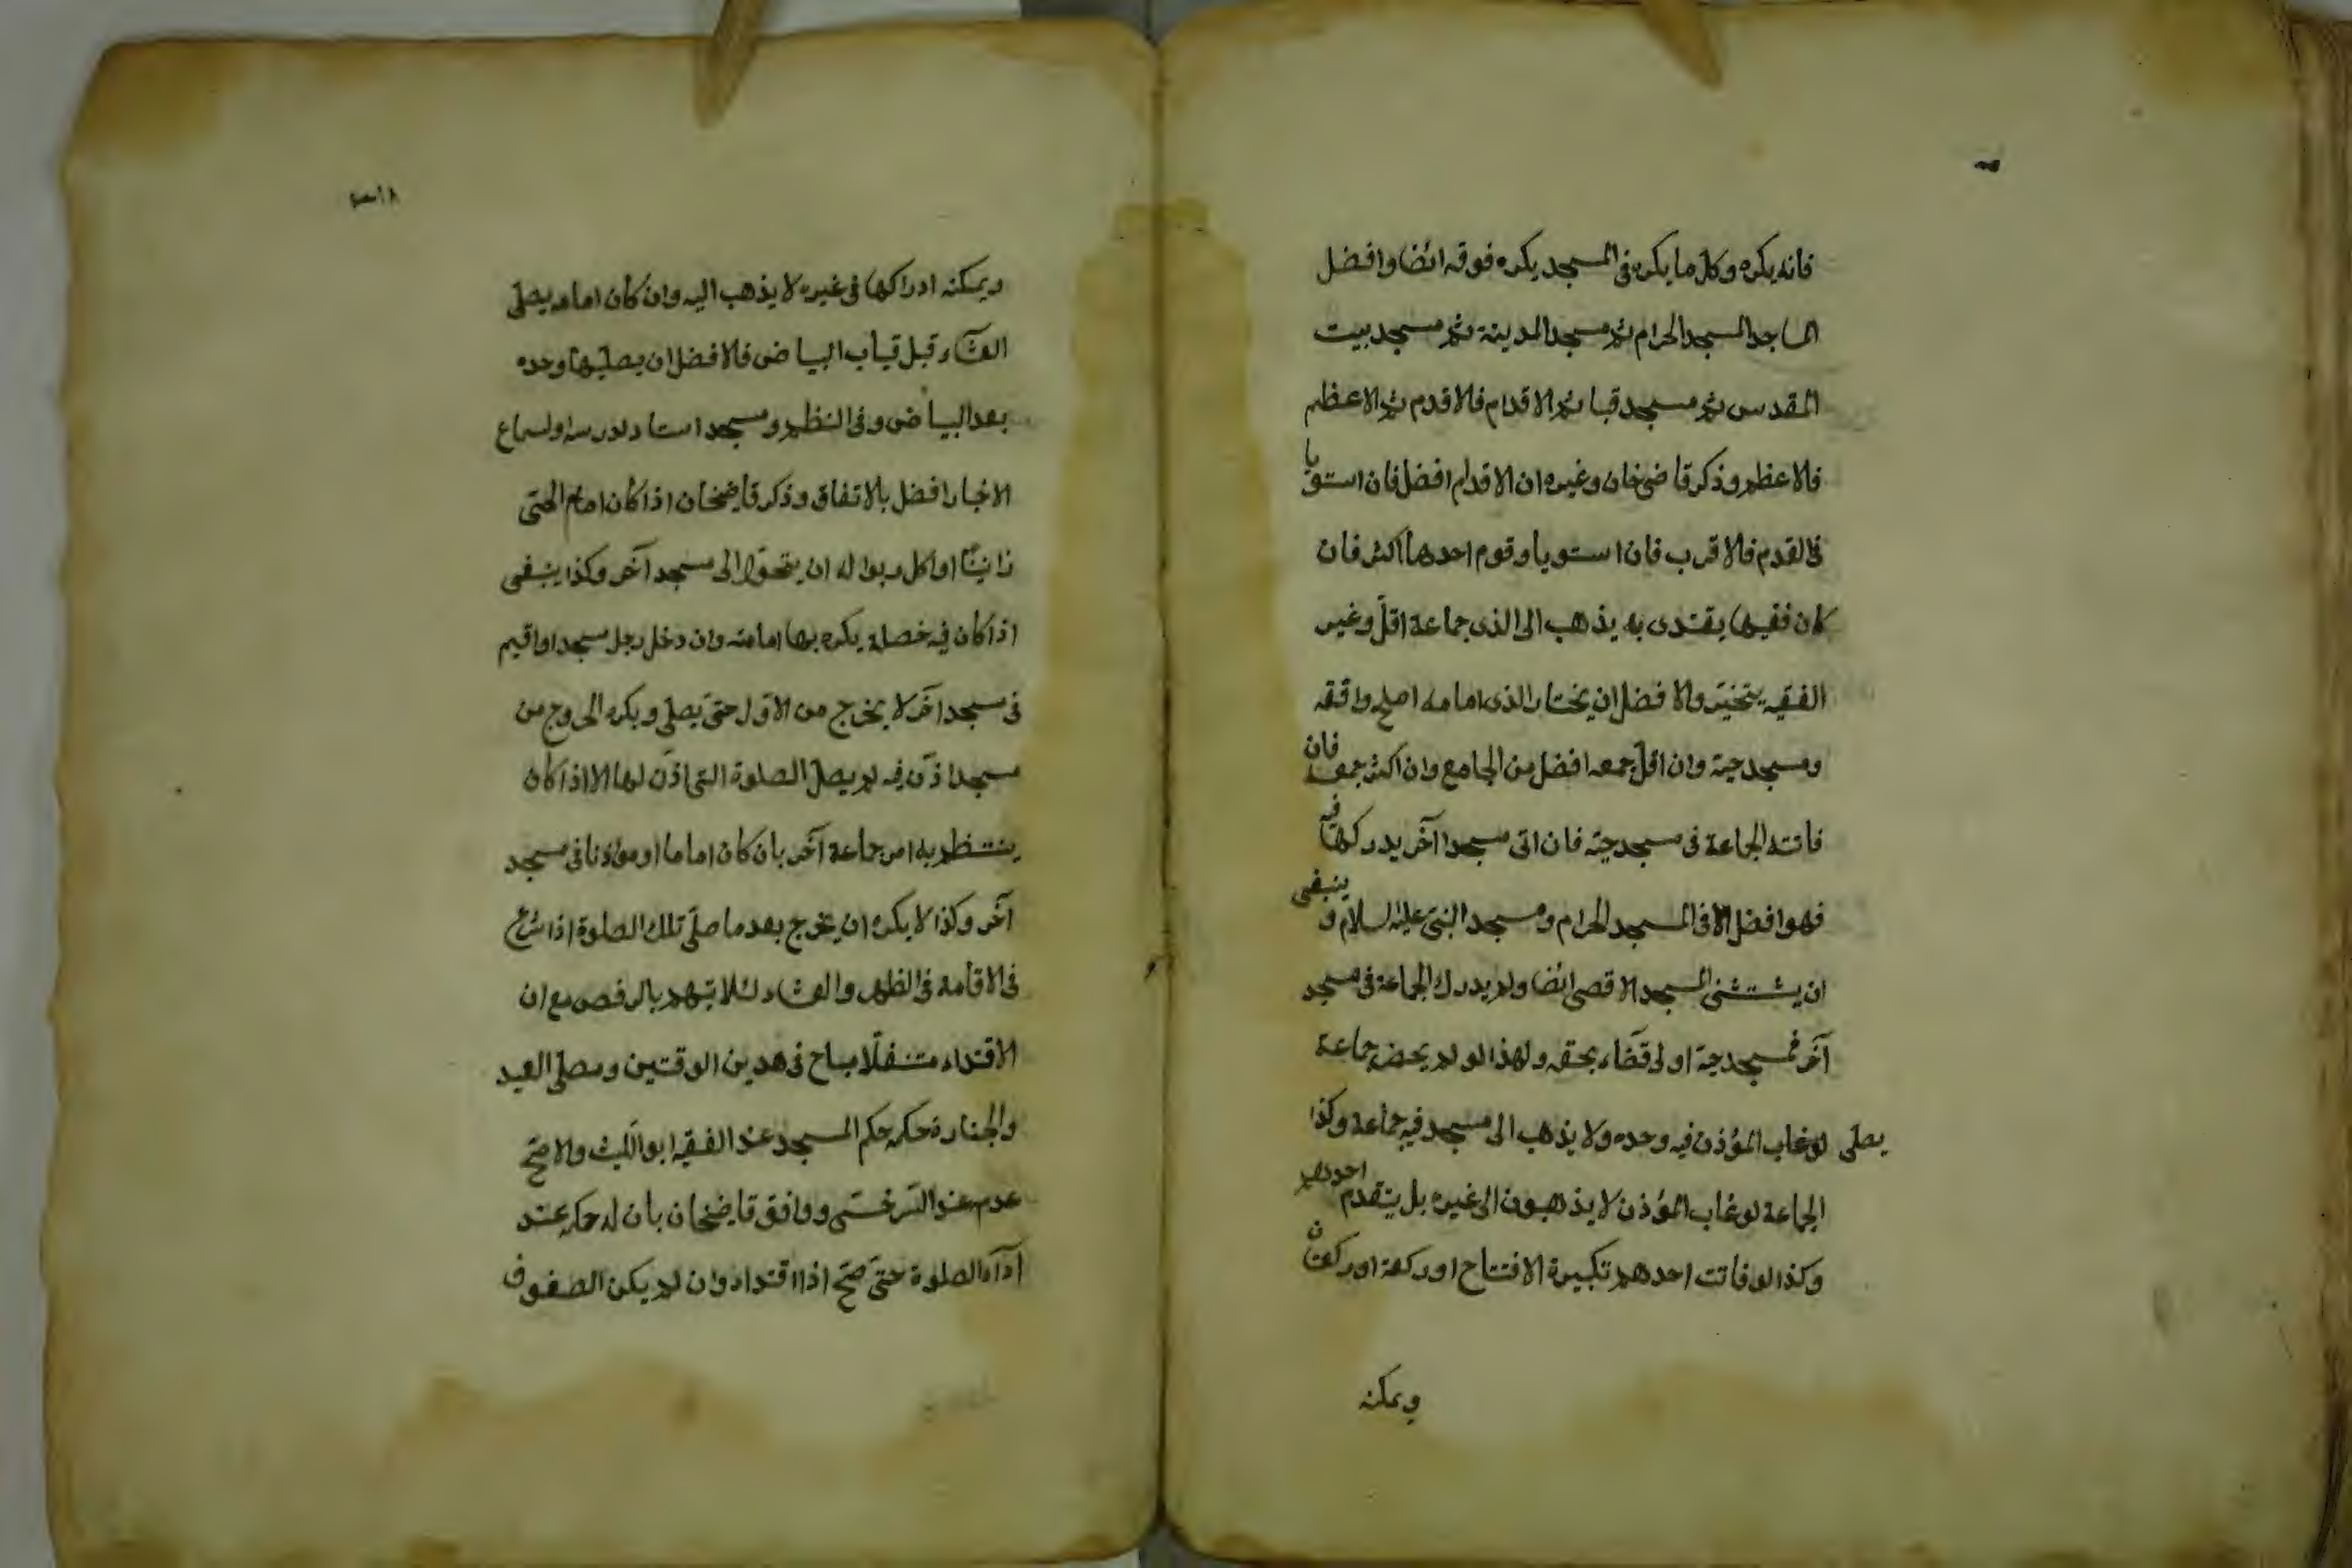 فانه يكره وكل ما يكره فى المسجد يكره فوقه ائضا وافضل
المساجد المسجد الحرام ثم مسجد المدينة ثم مسجد بيت
المقدس ثم مسجد قبا ثم الاقدم فالاقدم ثم الاعظم
فالاعظم وذكر قاضى خان وغيره ان الاقدم افضل فان استويا
فى القدم فالاقرب فان استويا وقوم احدهما اكثر فان
كان فقيها يقتدى به يذهب الى الذى جماعة اقل وغير
الفقيه يتخير والافضل ان يختار الذى امامه اصلح وافقه
ومسجد حيه وان اقل جمعه افضل من الجامع وان اكثر جمعه فان
فاتته الجماعة فى مسجد حيه فان اتى مسجدا آخر يدركها فيه
فهو افضل الا فى المسجد الحرام ومسجد النبى عليه السلام و ينبغى
ان يستثنى المسجد الاقصى ائضا ولو لم يدرك الجماعة فى مسجد
آخر فمسجد حيه اولى قضاء بحقه ولهذا لو لم يحضر جماعة
يصلى لو غاب المؤذن فيه وحده ولا يذهب الى مسجد فيه جماعة وكذا
الجماعة لو غاب المؤذن لا يذهبون الى غيره بل يتقدم احدهم
وكذا لو فاتت احدهم تكبيرة الافتتاح او ركعة او ركعتان
ويمكنه
ويمكنه ادراكها فى غيره لا يذهب اليه وان كان امامه يصلى
العشاء قبل غياب البياض فالافضل ان يصليها وحده
بعد البياض وفى النظم ومسجد استاد لدرسه او لسماع
الاخبار افضل بالاتفاق وذكر قاضيخان اذا كان امام الحى
زانيا او اكل ربوا له ان يتحول الى مسجد آخر وكذا ينبغى
اذا كان فيه خصلة يكره بها امامته وان دخل رجل مسجدا واقيم
فى مسجد آخر لا يخرج من الاول حتى يصلى ويكره الخروج من
مسجد اذن فيه لم يصل الصلوة التى اذن لها الا اذا كان
ينتظم به امر جماعة آخر بان كان اماما او مؤذنا فى مسجد
آخر وكذا لا يكره ان يخرج بعد ما صلى تلك الصلوة اذا شرع
فى الاقامة فى الظهر والعشاء لئلا يتهم بالرفض مع ان
الاقتداء متنفلا مباح فى هدين الوقتين ومصلى العيد
والجنازة حكمه حكم المسجد عند الفقيه ابو الليث والاصح
عدمه عند السرخسى ووافق قاضيخان بان له حكمه عند
اداء الصلوة حتى صح اذا اقتداء وان لم يكن الصفوف